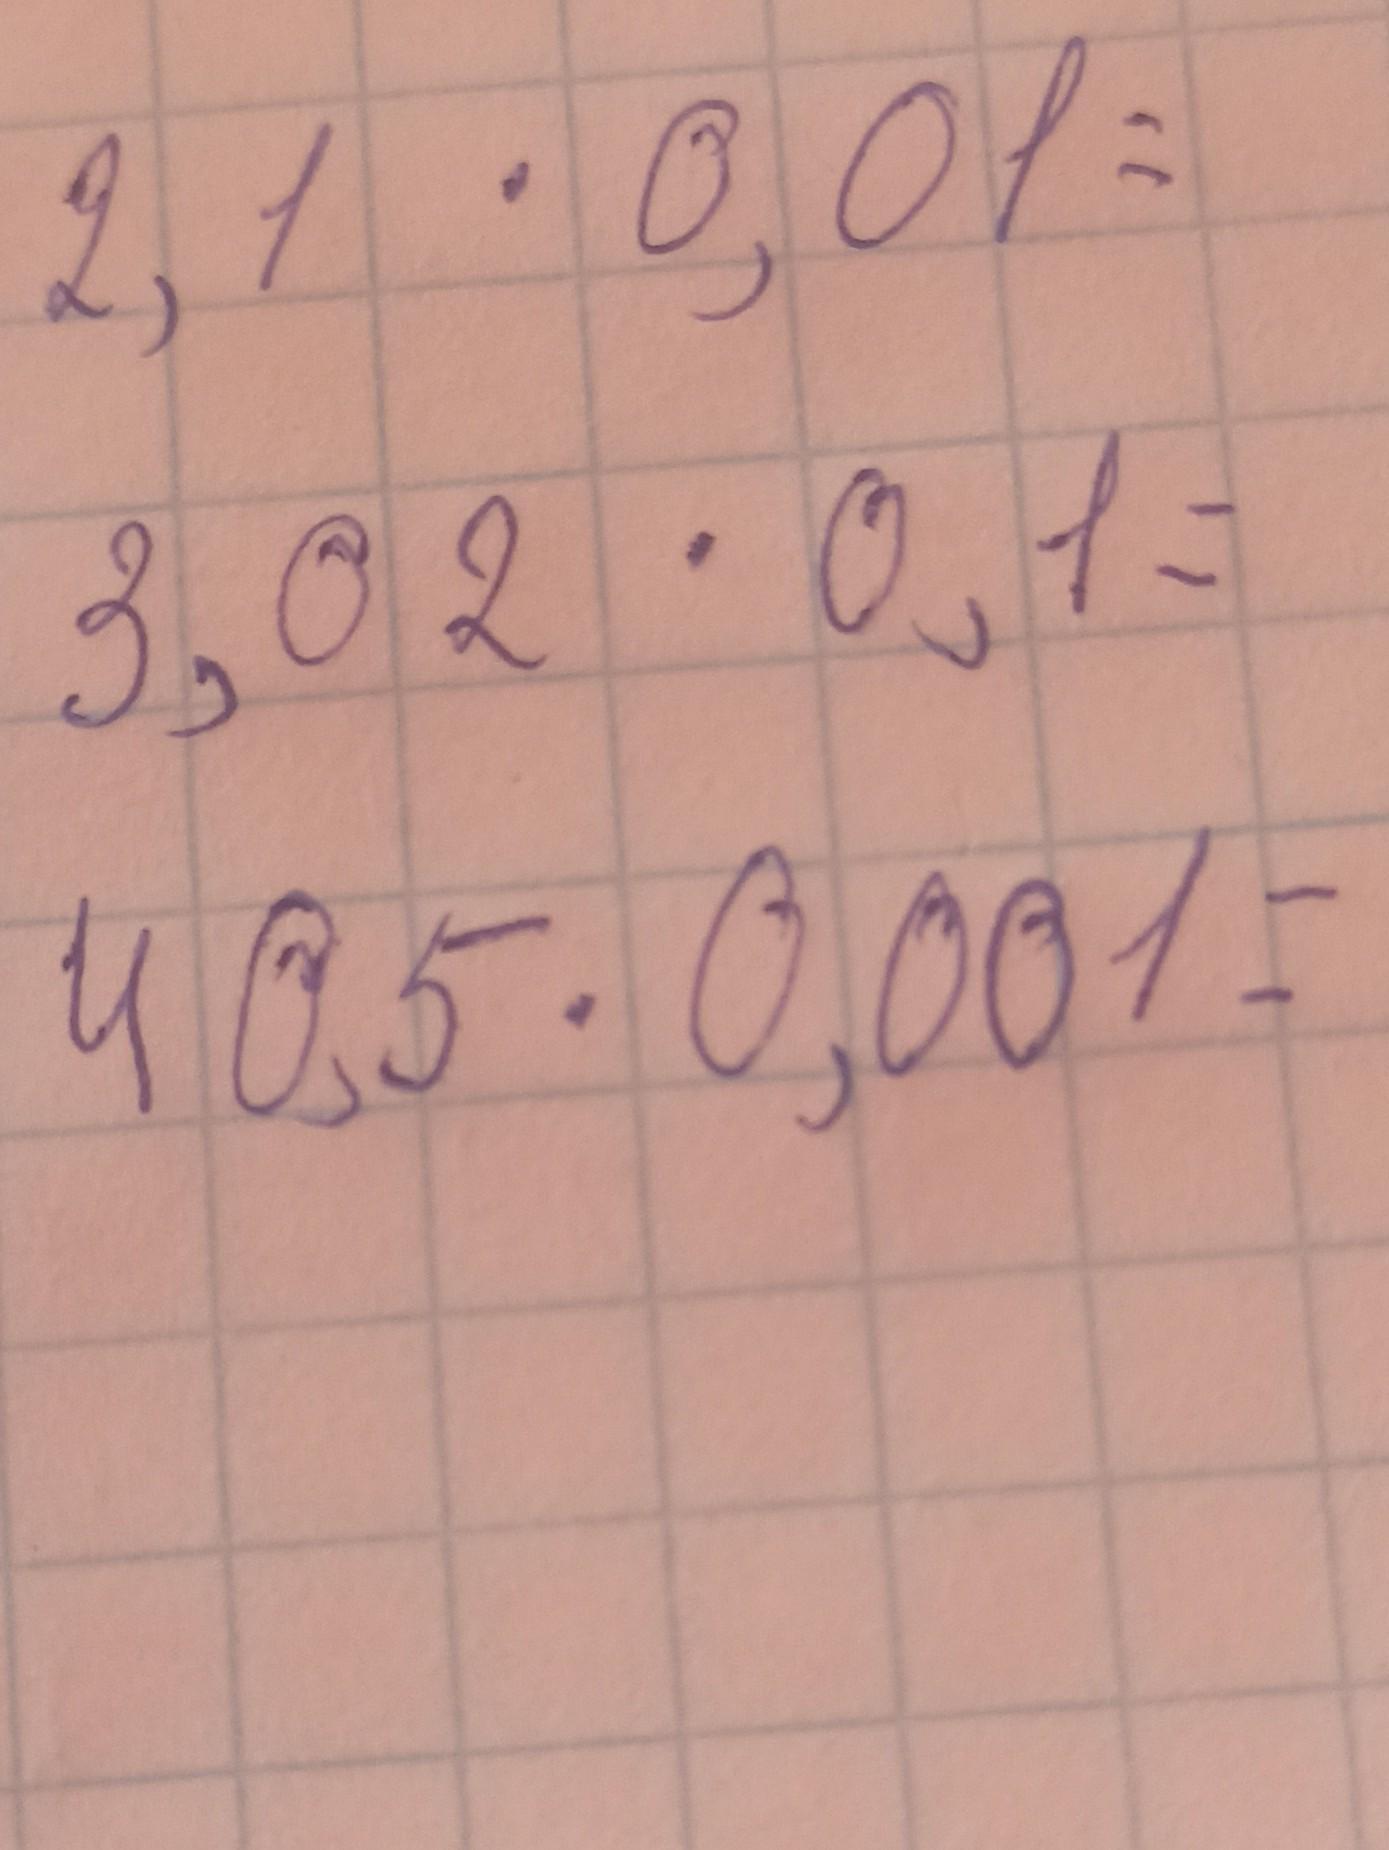 2,1 · 0,01=
3,02 · 0,1=
40,5 · 0,001=